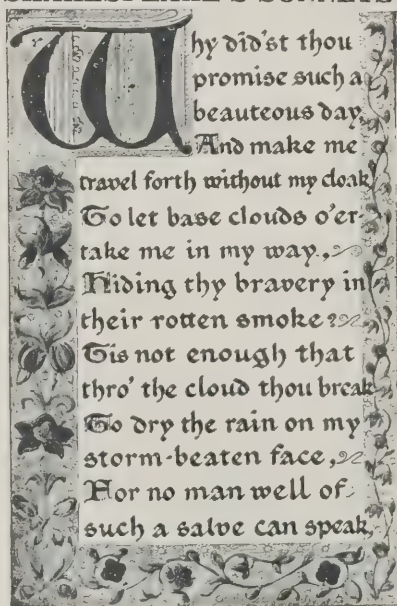 Why did'st thou
promise such a
beauteous day,
And make me
travel forth without my cloak
To let base clouds o'er-
take me in my way,
Hiding thy bravery in
their rotten smoke?
Tis not enough that
thro' the cloud thou break
To dry the rain on my
storm-beaten face,
For no man well of
such a salve can speak,